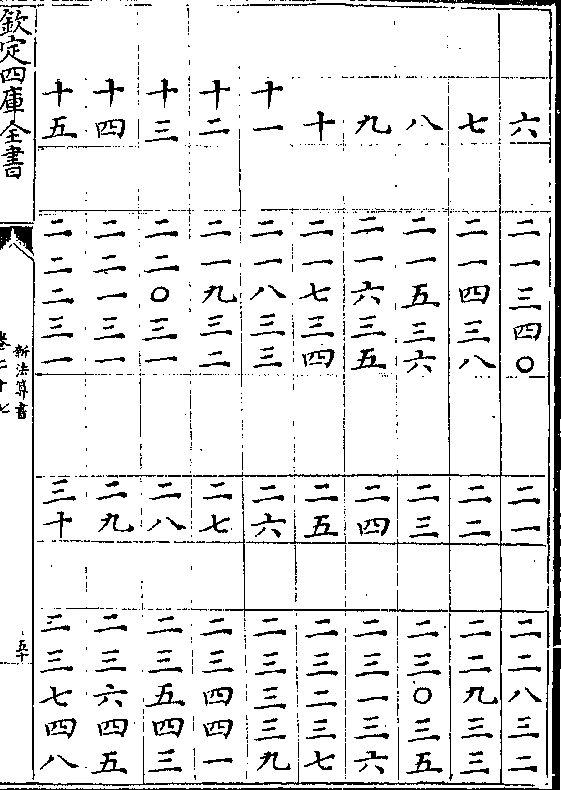 六 二一三四〇 二一 二二八三二
七 二一四三八 二二 二二九三三
八 二一五三六 二三 二三〇三五
九 二一六三五 二四 二三一三六
十 二一七三四 二五 二三二三七
十一 二一八三三 二六 二三三三九
十二 二一九三二 二七 二三四四一
十三 二二〇三一 二八 二三五四三
十四 二二一三一 二九 二三六四五
十五 二二二三一 三十 二三七四八
欽定四庫全書
新法算書
卷二十七
五十